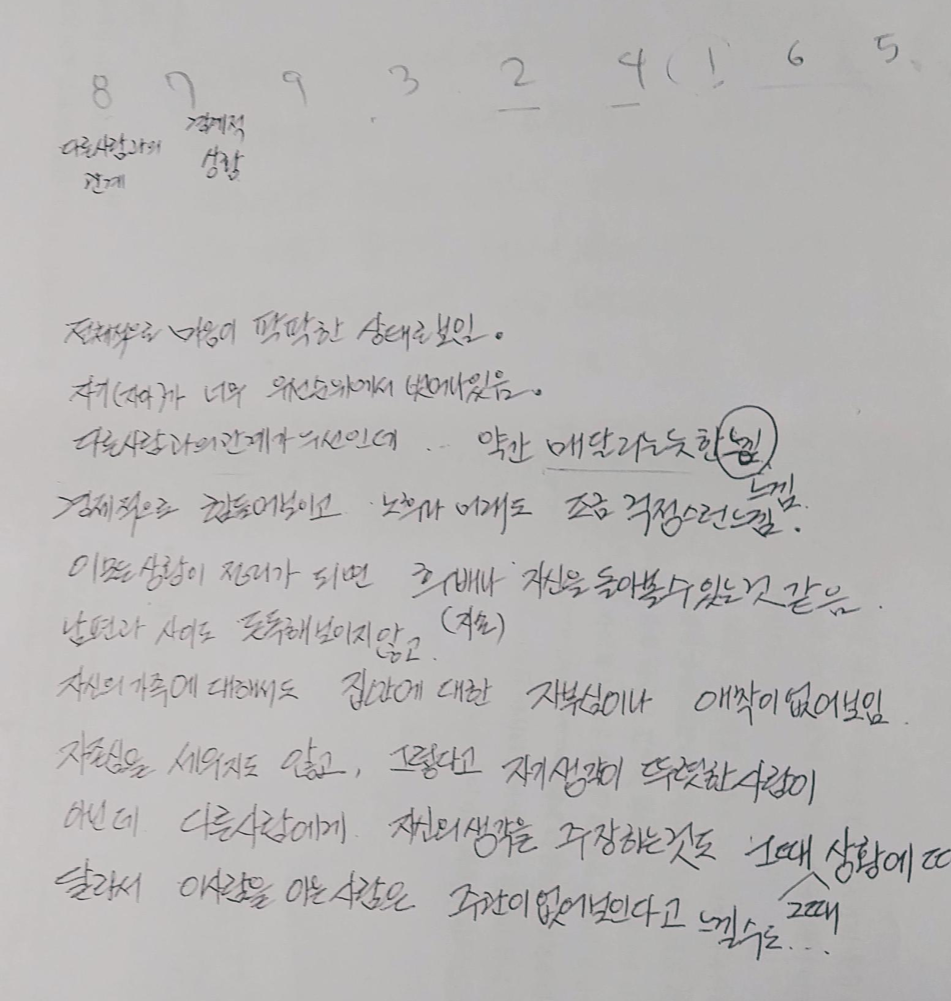 8 7 9 3 2 4 ( 1 6 5
다른사람과의 경제적
관계 상황
전체적으로 마음이 팍팍한 상태로 보임.
자기(자아)가 너무 우선순위에서 벗어나있음.
다른사람과의관계가 우선인데 .. 약간 매달리는듯한 느낌
느낌
경제적으로 힘들어보이고 노후나 미래도 조금 걱정스런느낌.
이모든상황이 정리가 되면 자신을 돌아볼수있는것 같음.
남편과 사이도 돈독해보이지않고. (자손)
자신의가족에대해서도 집안에 대한 자부심이나 애착이없어보임.
자존심을 세우지도 않고, 그렇다고 자기생각이 뚜렷한사람이
아닌데 다른사람에게 자신의생각을 주장하는것도 그때 상황에 따
그때
달라서 이사람을 아는사람은 주관이없어보인다고 느낄수도...